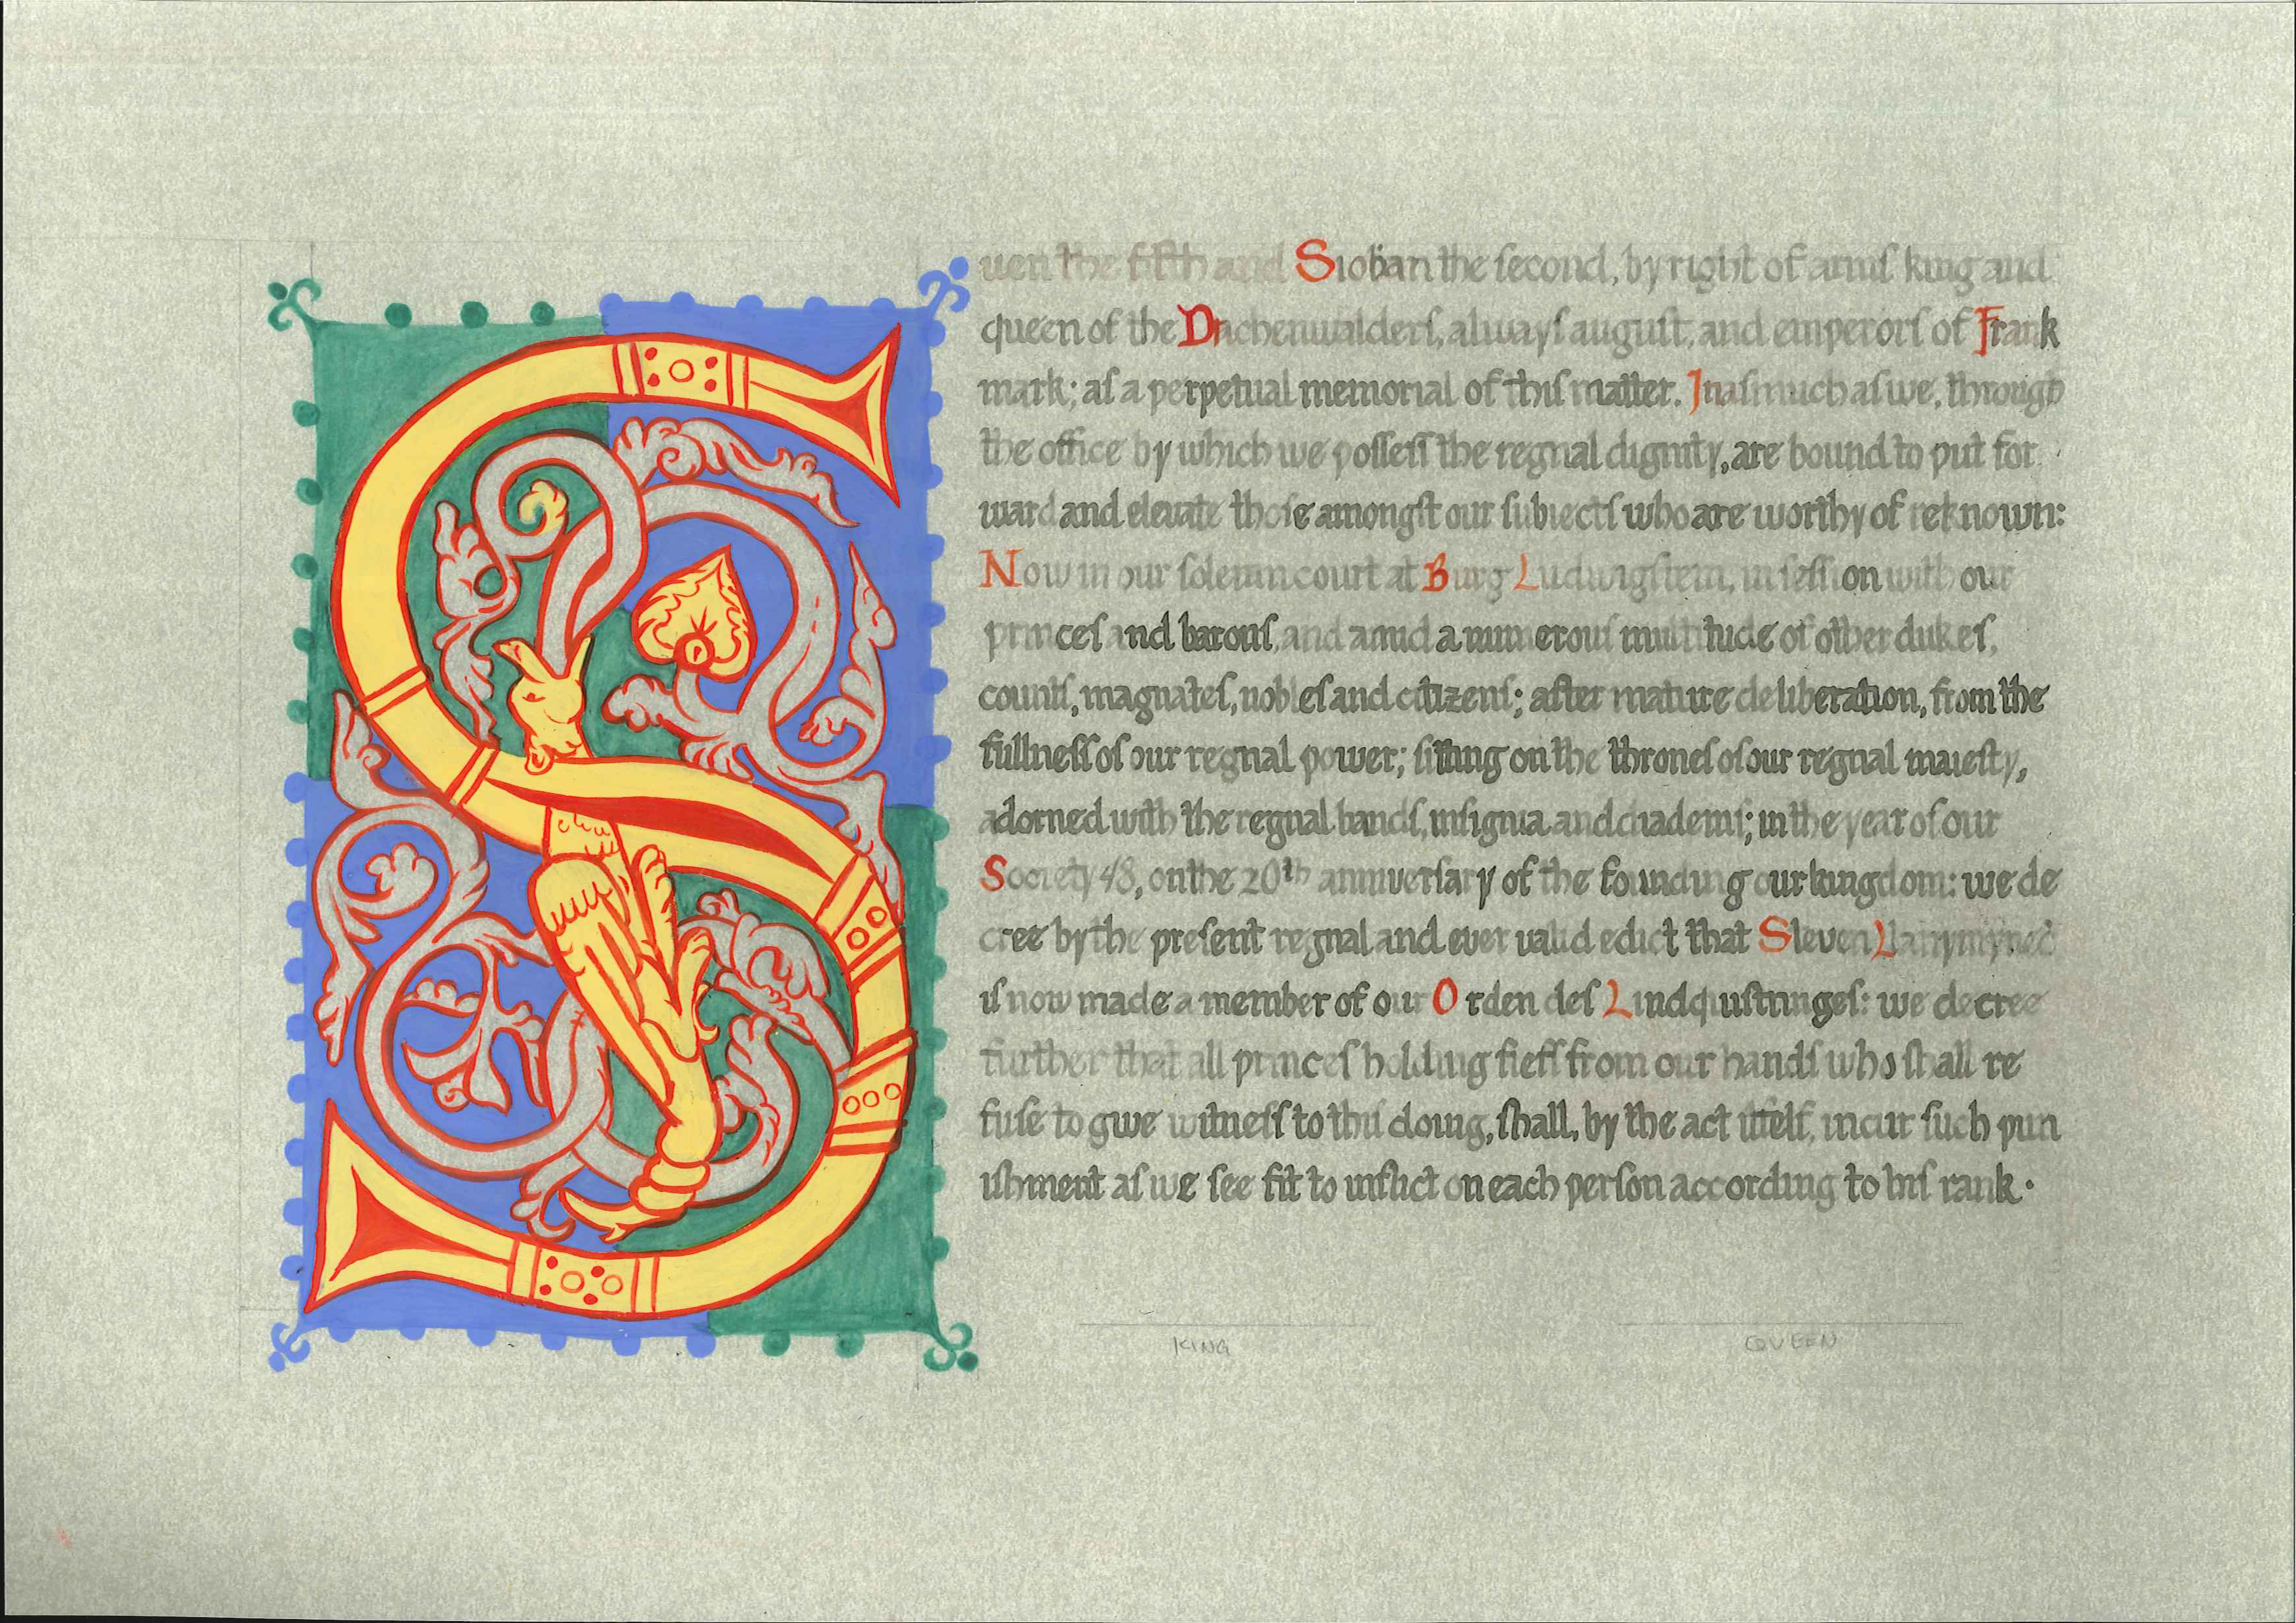 Suen the fifth and Sioban the second, by right of arms king and
queen of the Drachenwalders, always august, and emperors of Frank
mark; as a perpetual memorial of this matter. Inasmuch as we, through
the office by which we possess the regnal dignity, are bound to put for
ward and elevate those amongst our subiects who are worthy of reknown:
Now in our solemn court at Burg Ludwigstein, in session with our
princes and barons, and amid a numerous multitude of other dukes,
counts, magnates, nobles and citizens; after mature deliberation, from the
fullness of our regnal power; sitting on the thrones of our regnal maiesty,
adorned with the regnal bands, insignia and diadems; in the year of our
Society 48, on the 20th anniversary of the founding our kingdom: we de
cree by the present regnal and ever valid edict that Sleven Llanymynec
is now made a member of our Orden des Lindquistringes: we decree
further that all princes holding fiefs from our hands who shall re
fuse to give witness to this doing, shall, by the act itself, incur such pun
ishment as we see fit to inflict on each person according to his rank.
KING QUEEN